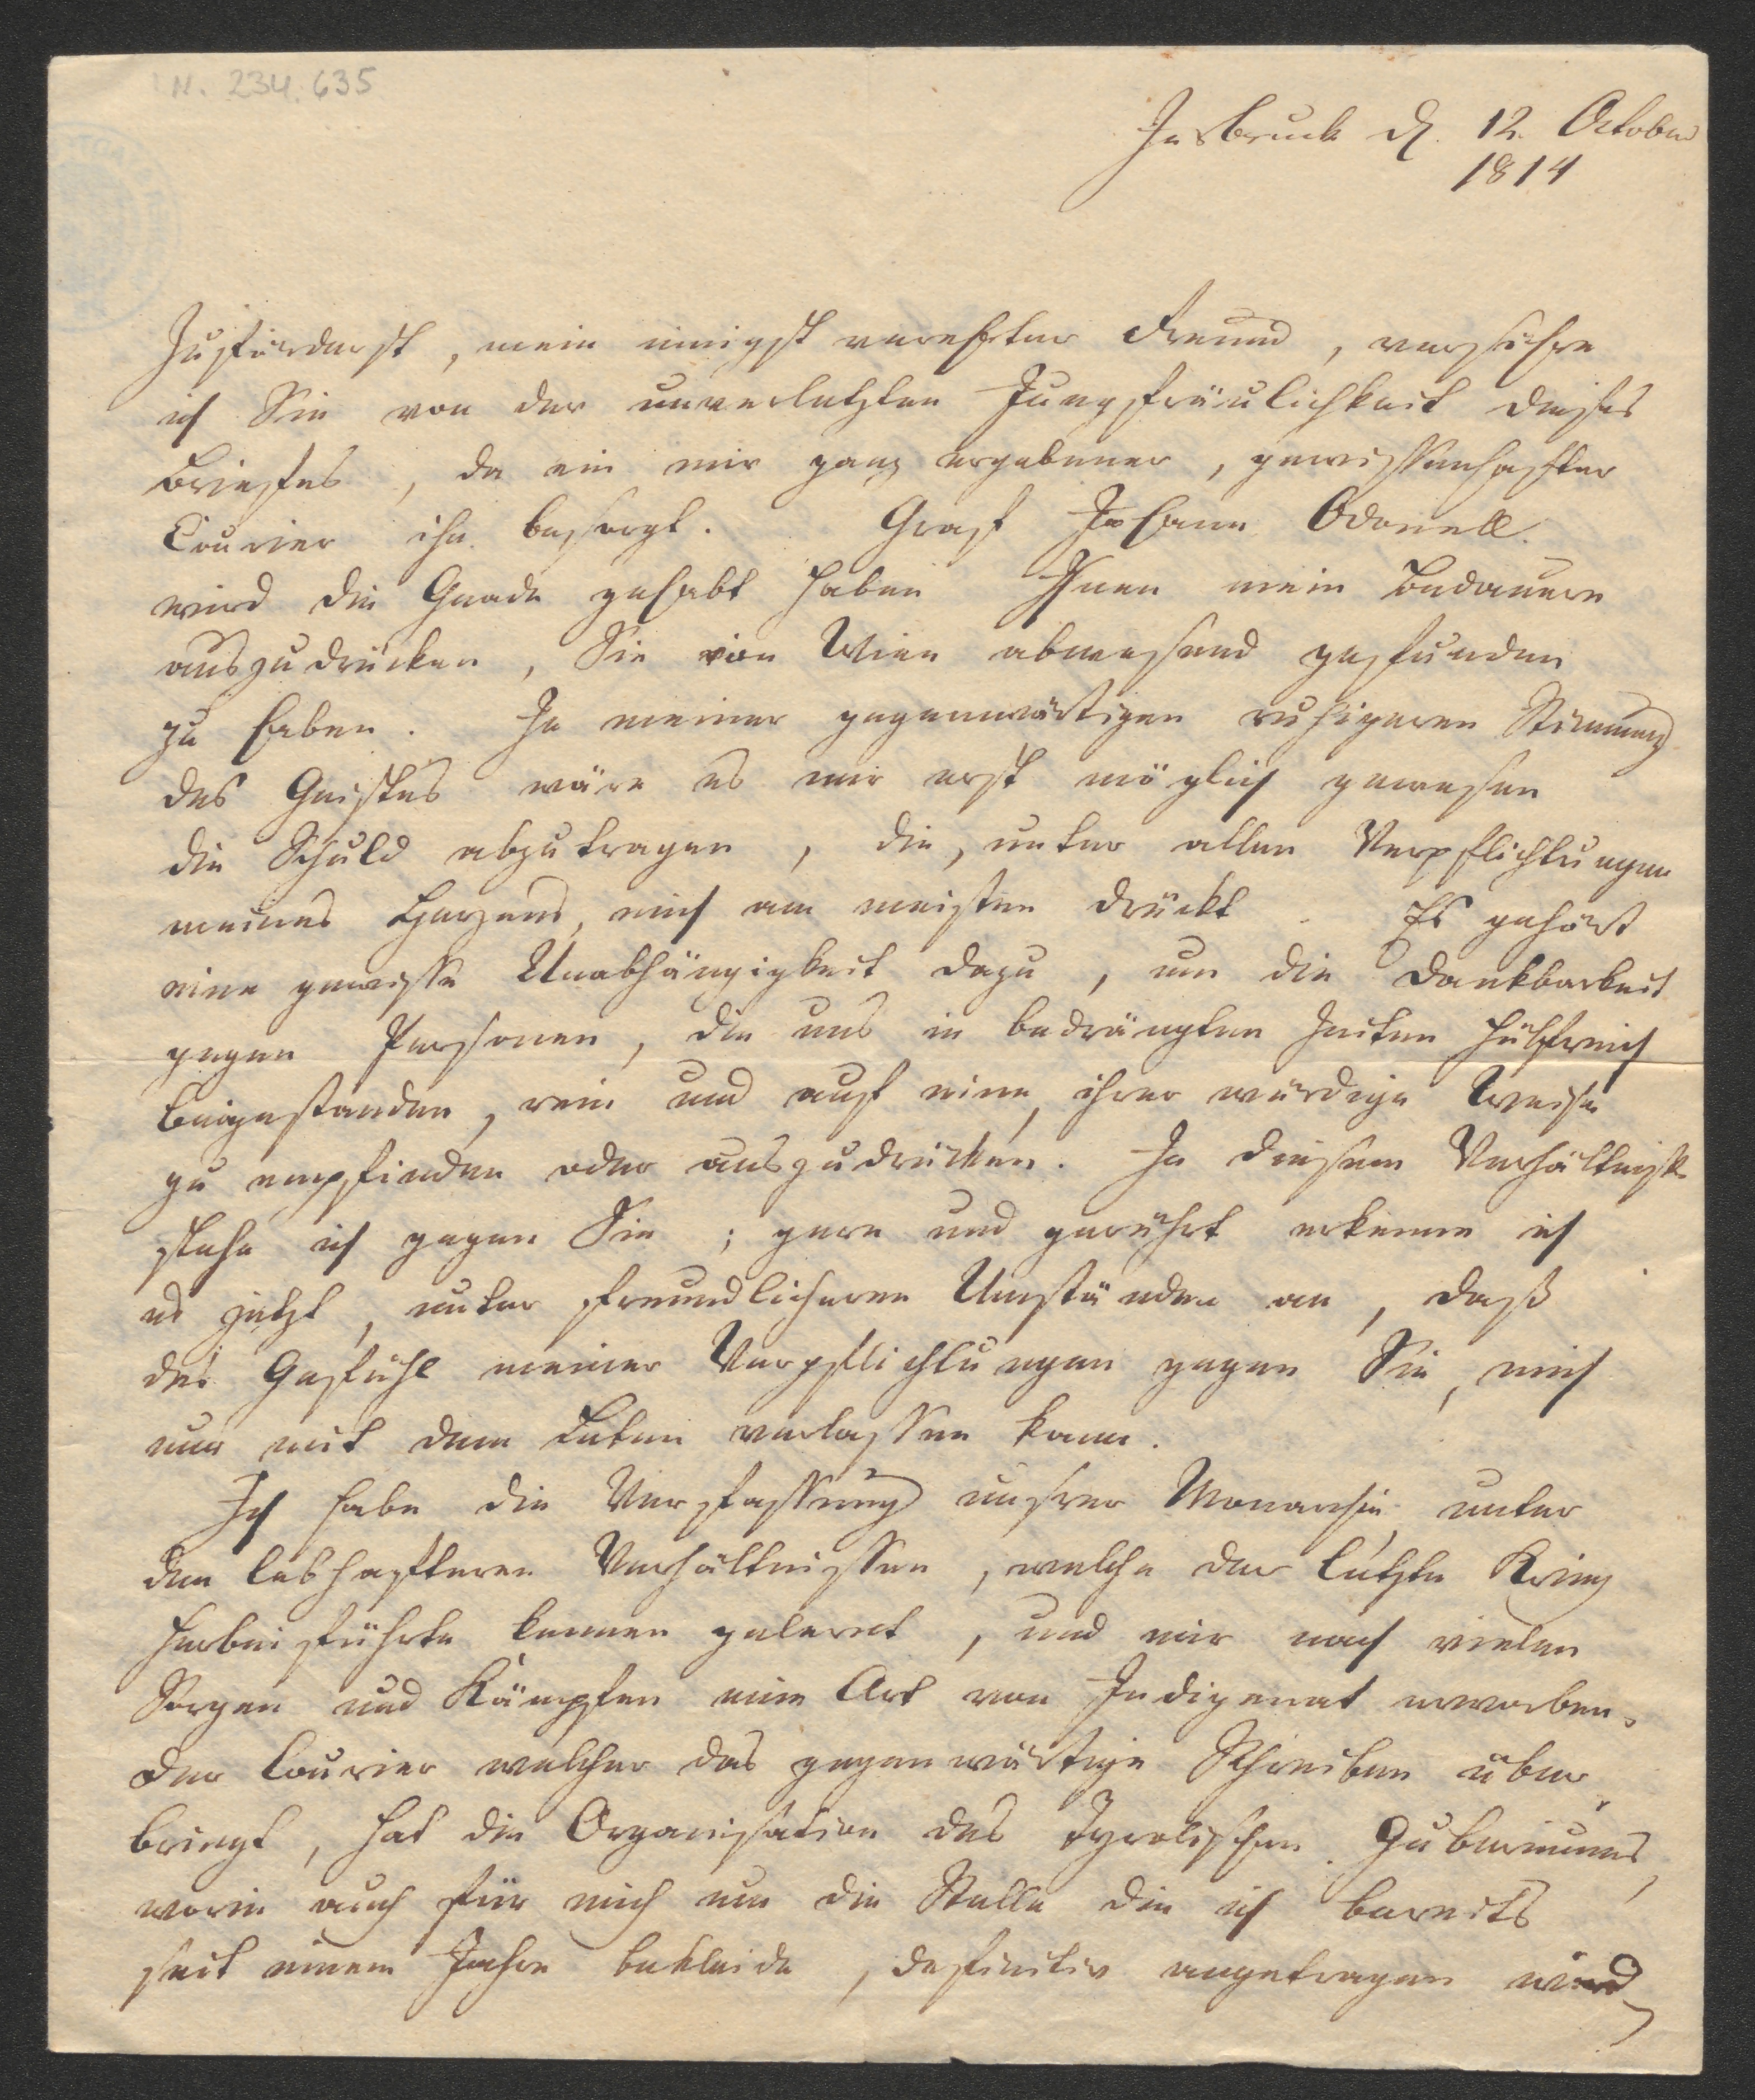 N. 234.635
Insbruck d. 12. October
1814
Zuförderst, mein innigst verehrter Freund, versichre
ich Sie von der unverletzten Jungfräulichkeit dieses
Briefes, da ein mir ganz ergebener, gewissenhafter
Courier ihn besorgt. Graf Johann Odonell
wird die Gnade gehabt haben Ihnen mein Bedauern
auszudrücken, Sie von Wien abwesend gefunden
zu haben. In meiner gegenwärtigen ruhigeren Stimmung
des Geistes wäre es mir erst möglich gewesen
die Schuld abzutragen, die, unter allen Verpflichtungen
meines Herzens, mich am meisten drückt. Es gehört
eine gewisse Unabhängigkeit dazu, um die Dankbarkeit
gegen Personen, die uns in bedrängten Zeiten hülfreich
beigestanden, rein und auf eine, ihrer würdige Weise
zu empfinden oder auszudrücken. In diesem Verhältniße
stehe ich gegen Sie; gern und gerührt erkenne ich
es jetzt, unter freundlicheren Umständen an, daß
das Gefühl meiner Verpflichtungen gegen Sie, mich
nur mit dem Leben verlassen kann.
Ich habe die Verfassung unsrer Monarchie unter
den lebhafteren Verhältnissen, welche der letzte Krieg
herbeiführte kennen gelernt, und mir nach vielen
Sorgen und Kämpfen eine Art von Indigenat erworben.
Der Courier welcher das gegenwärtige Schreiben über
bringt, hat die Organisation des tyrolischen Guberniums,
worin auch für mich um die Stelle die ich bereits
seit einem Jahre bekleide, definitiv angetragen wird,